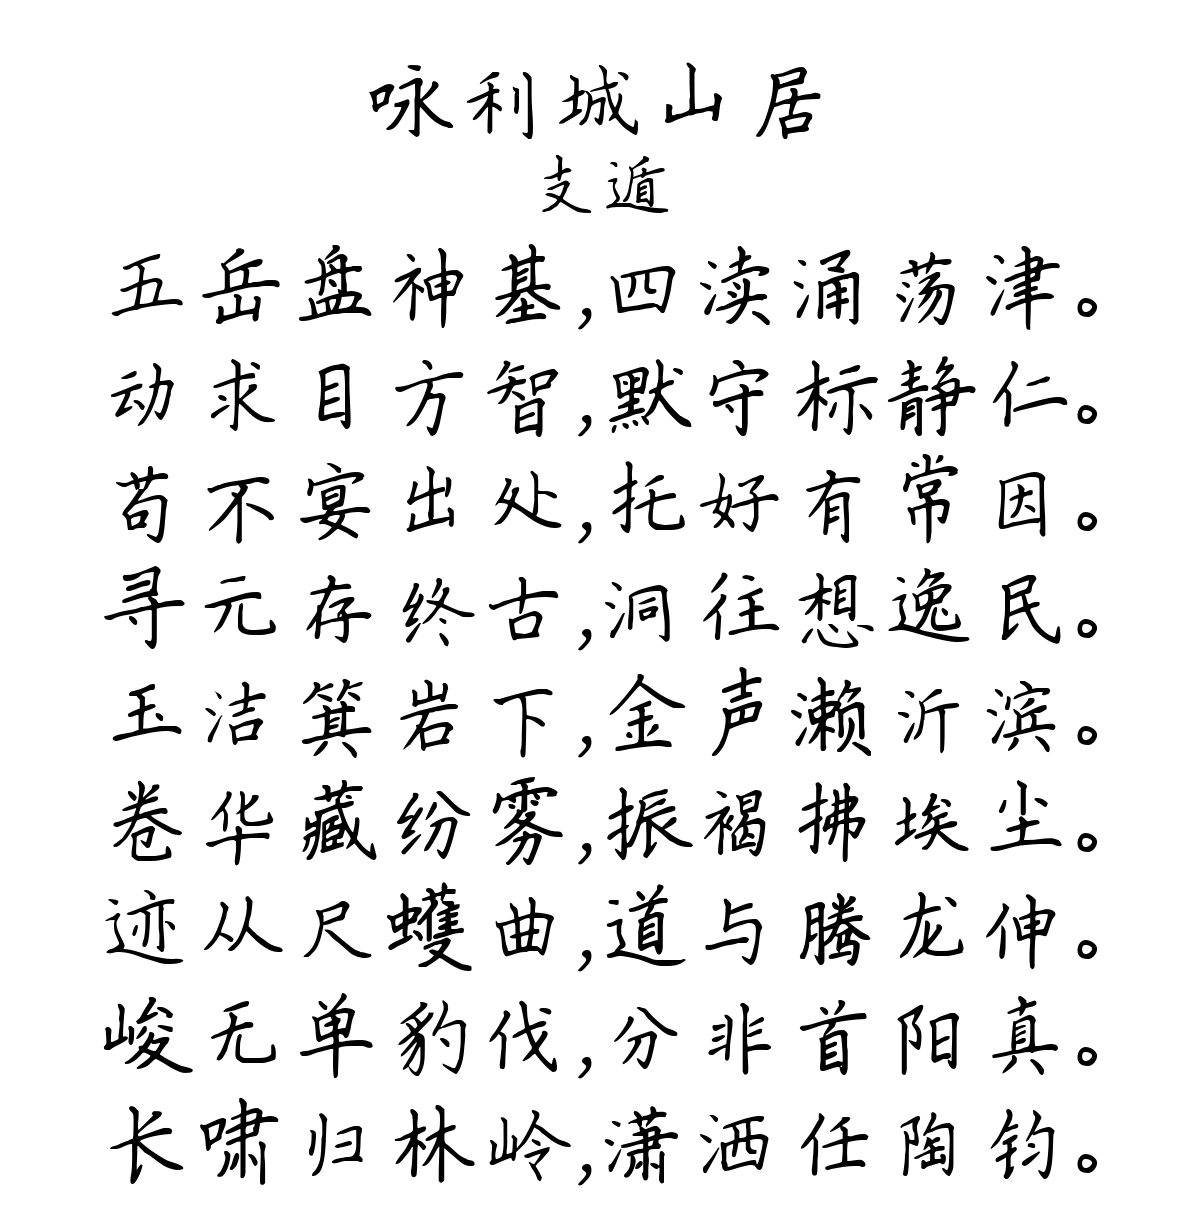 咏利城山居
支遁
五岳盘神基,四渎涌荡津。
动求目方智,默守标静仁。
苟不宴出处,托好有常因。
寻元存终古,洞往想逸民。
玉洁箕岩下,金声濑沂滨。
卷华藏纷雾,振褐拂埃尘。
迹从尺蠖曲,道与腾龙伸。
峻无单豹伐,分非首阳真。
长啸归林岭,潇洒任陶钧。